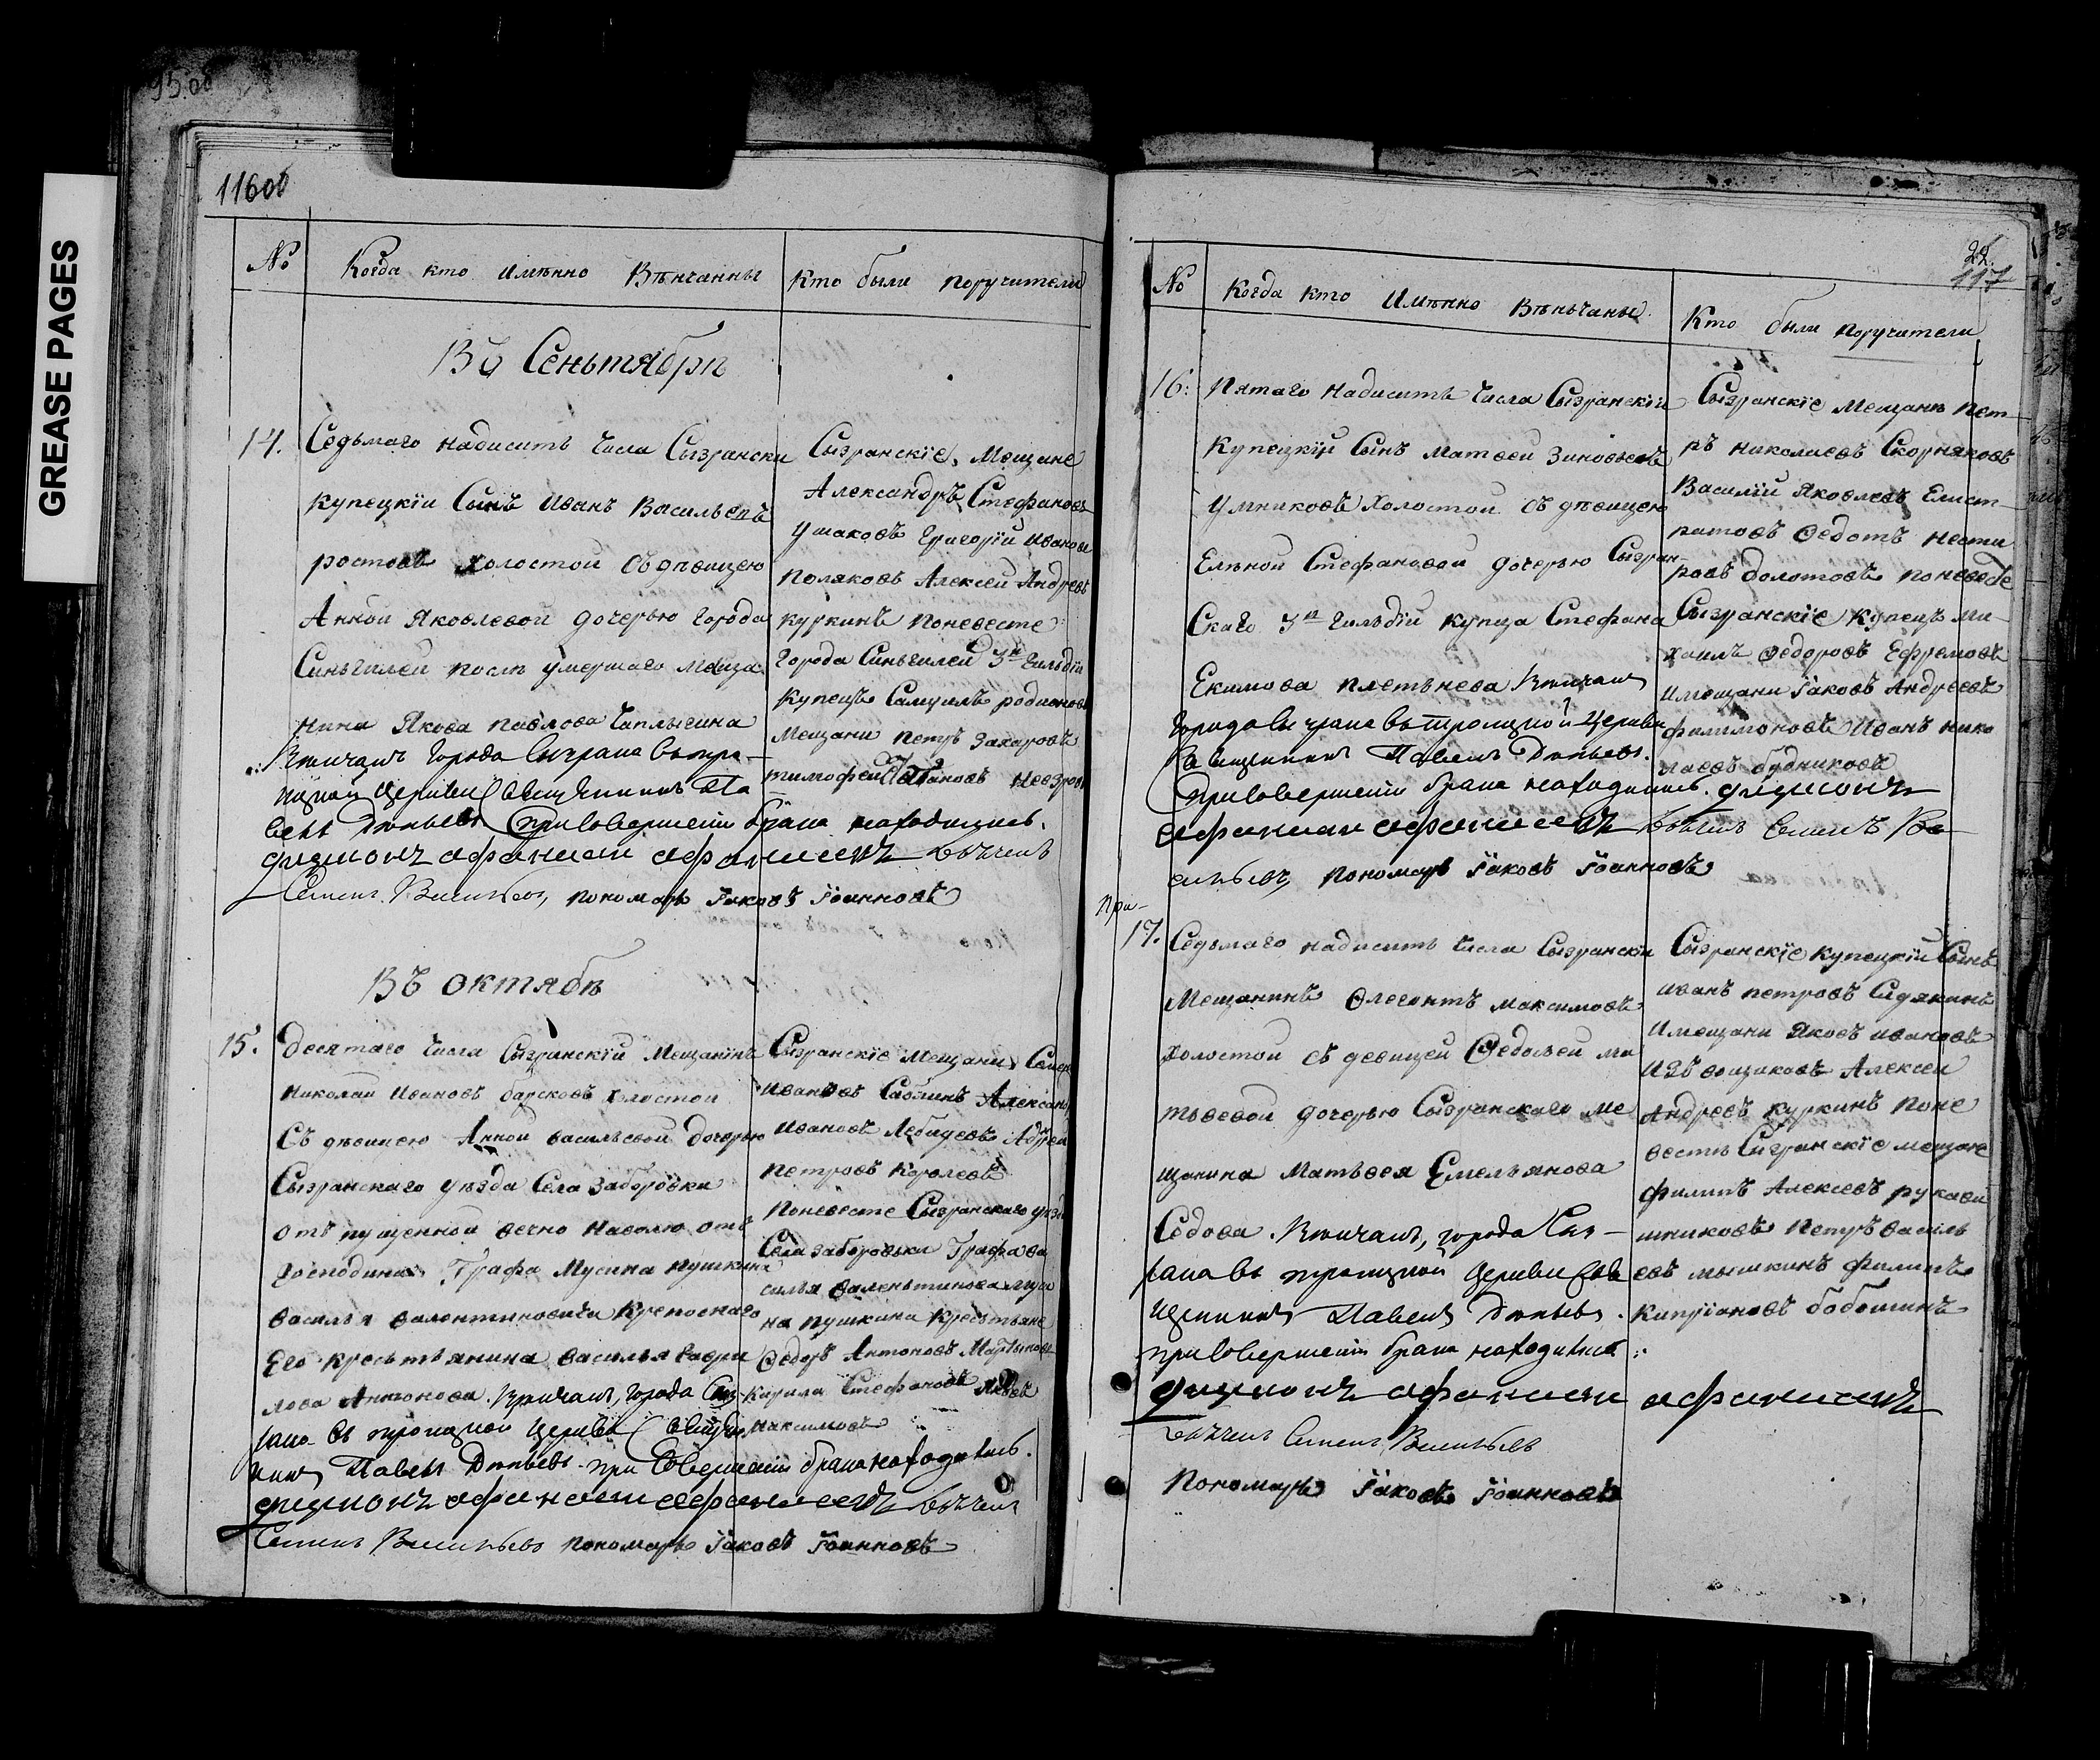 95 об
GREASE PAGES
116 об
№ Когда кто имѣнно Вѣнчанны Кто были поручители
Въ Сеньтябрѣ
14. Седьмаго надисить числа Сызрански
купецкїи Сынъ Иванъ Васильевъ
ростовъ холостои съ дѣвицею
Анной Яковлевой дочерью города
Синьгилеи послѣ умершаго меща
нина Якова павлова Чаплыгина
Вѣнчалъ города Сызрана въ трo-
ицкой церкви Священникъ Па
велъ при Совершенiи брака находились.
дияконъ афанасии афанасьевъ
Семенъ Васильевъ, пономарь Iаковъ Iоанновъ
Сызранскїе Мещане
Александръ Стефановъ
Ушаковъ Григорїй Ивановъ
Поляковъ Алексеи Андреевъ
куркинъ Поневесте
города Синьгилеи 3й Гильдїи
купецъ Самуилъ родионовъ
Мещани петръ Захаровъ
тимофеи
Въ Октябѣ
15. Десятаго числа Сызранскїй Мещанинъ
Николаи Ивановъ барсковъ холостои
Съ дѣвицею Анной васильевой дочерью
Сызранскаго уѣзда Села Заборовки
отъ пущенной вечно наволю отъ
Господина Графа Мусина пушкина
Василья валентиновича крепоснаго
Его кресьтьянина василья гаври
лова Антонова. Вѣнчалъ, города Сыз-
рана въ троицкой церкви Священ
никъ Павелъ при Совершенiи брака находились.
дияконъ афанасии афанасьевъ
Семенъ Васильевъ пономарь Iаковъ Iоанновъ
Сызранскїе Мещани Семенъ
Ивановъ Саблинъ Александръ
Ивановъ Лебидевъ Адрей
Петровъ Королевъ
Поневесте Сызранскаго уезда
Села заборовки Графа ва
силья валеньтинова муси
на пушкина кресьтьяне
Федоръ Антоновъ Мартыновъ
Кирила Стефановъ
Максимовъ
22.
117
№ Когда кто Имѣнно Вѣньчаны Кто были поручители
16. Пятаго надисить числа Сызранскїй
купецкїй Сынъ Матвеи Зиновьевъ
Умниковъ холостои съ дѣвицею
Еленой Стефановой дочерью Сызран-
Скаго 3й гильдїй купца Стефана
Екимова плетьнева Вѣнчалъ
города Сызрана въ троицкой Церкви
Священникъ Павелъ
при Совершенiи брака находились. дияконъ
афанасии афанасьевъ Семенъ Ва
сильевъ, пономарь Iаковъ Iоанновъ
Сызранскїе Мещанѣ Пет-
ръ Николаевъ Скорняковъ
Василїй Яковлевъ Елист-
ратовъ Федотъ Несте
ровъ болотовъ поневесте
Сызранскїе купецъ ми-
хаилъ Федоровъ Ефремовъ
Имещани Iаковъ Андреевъ
филимоновъ Иванъ нико
лаевъ будниковъ
при-
17. Седьмаго надисить числа Сызрански
Мещанинъ Флегонтъ Максимовъ
холостой съ девицей Федосьеи ма
тьвевой дочерью Сызранскаго ме
щанина Матьвея Емельянова
Седова. Вѣнчалъ, города Сыз-
рана въ троицкой Церкви Свя
щенникъ Павелъ
при Совершенiи брака находились.
дияконъ афанасии афанасьевъ
Семенъ Васильевъ
Пономарь Iаковъ Iоанновъ
Сызранскїе купецкїи Сынъ
Иванъ петровъ Сидякинъ
Имещани Яковъ Ивановъ
Извощиковъ Алексеи
Андреевъ куркинъ поне
весте Сызранскїе мещане
филипъ Алексеевъ рукави
шниковъ петръ василь
евъ мышкинъ филипъ
Кипрїановъ бобошинъ